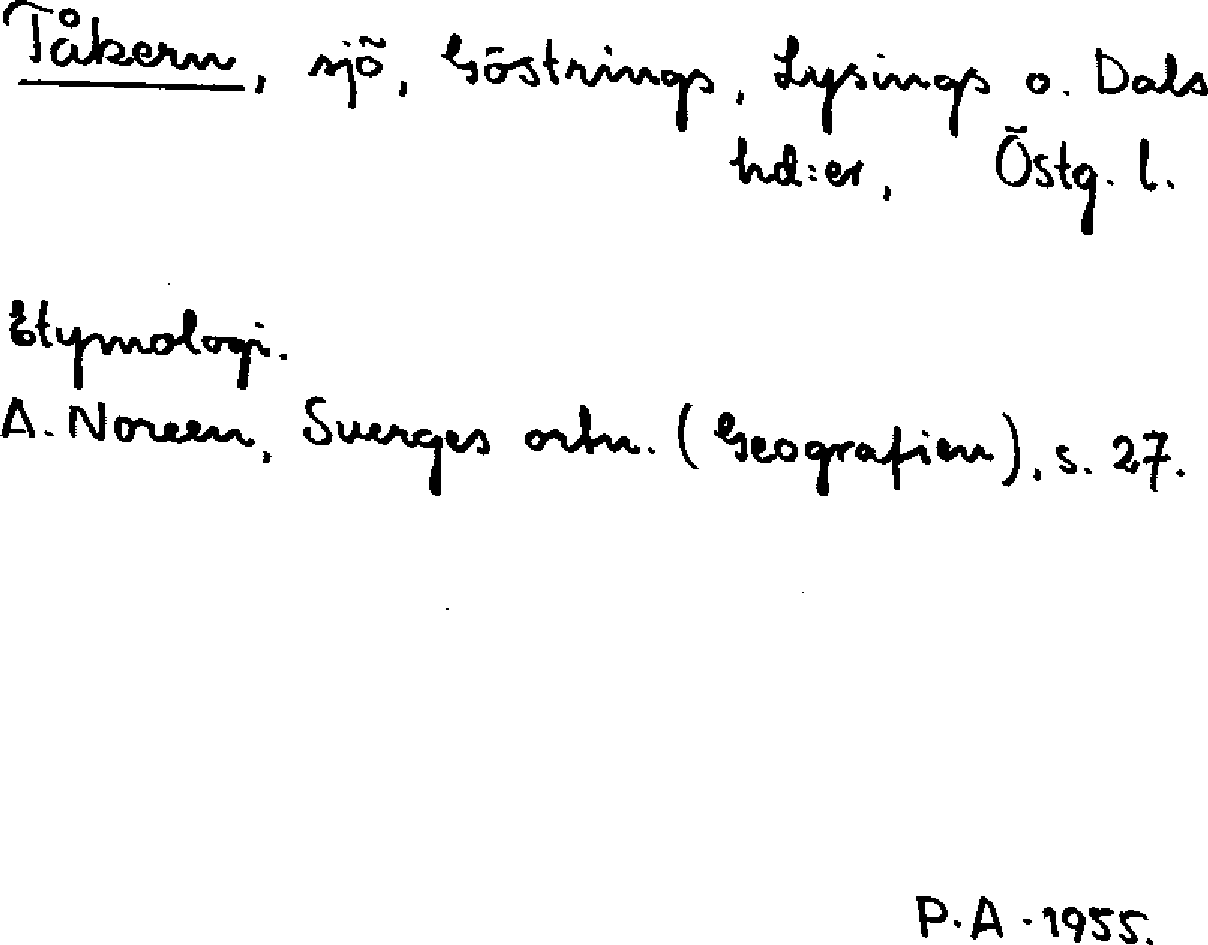 Tåkern, sjö, Göstrings, Lysings o. Dals
hd:er, Östg. l.
Etymologi.
A. Noreen, Sverges ortn. (Geografien), s. 27.
P.A. 1955.